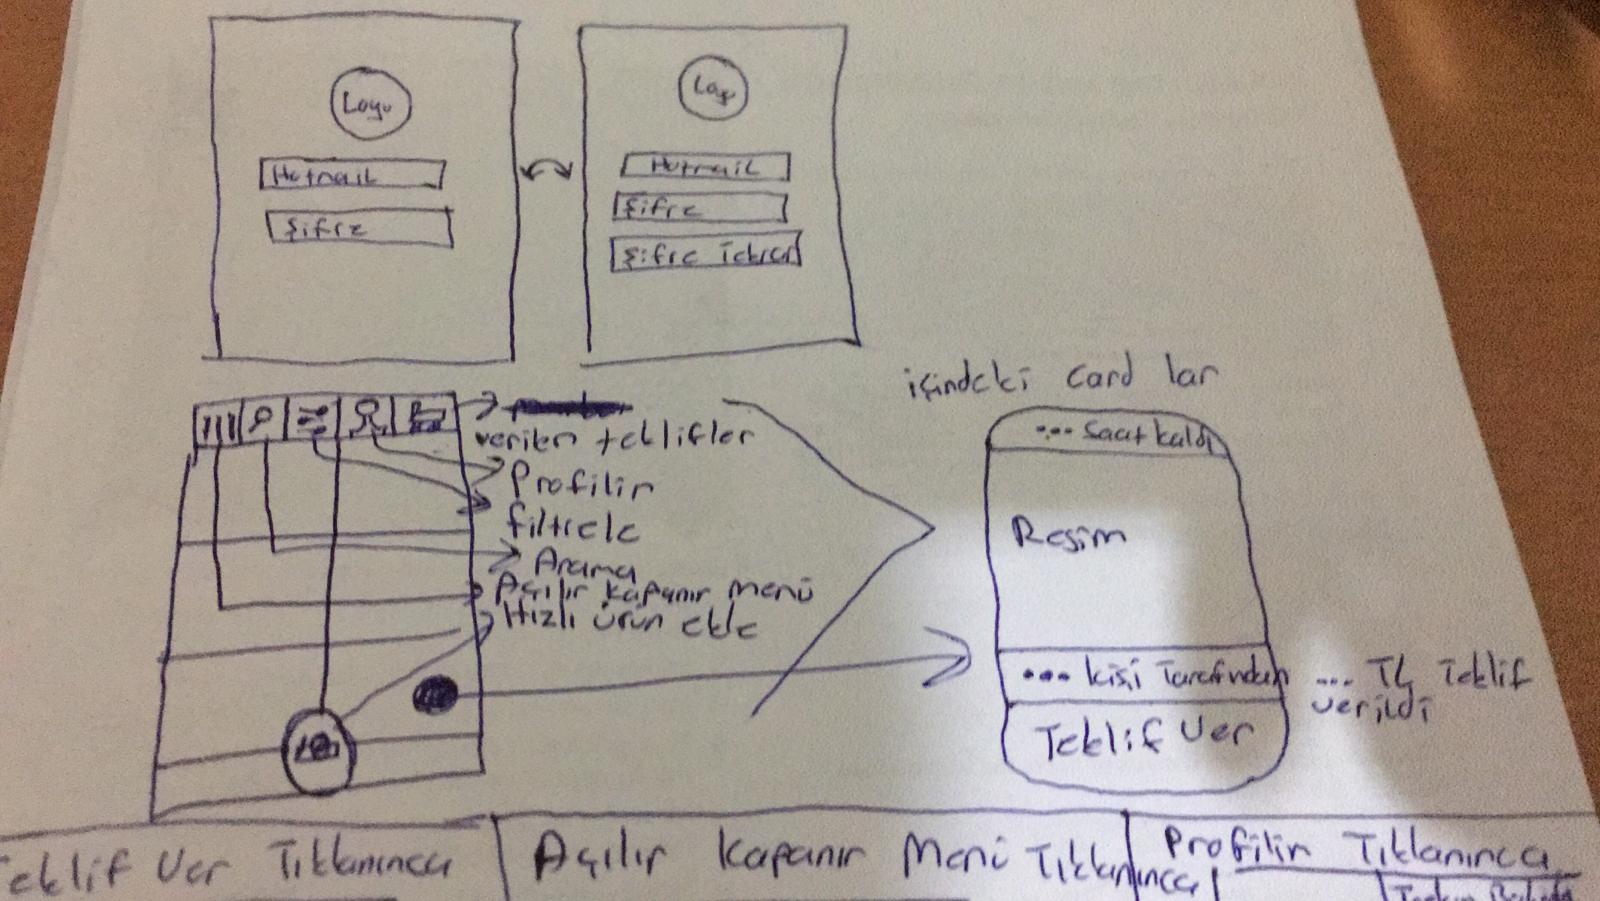 Logo
Hotmail
Şifre
Logo
Hotmail
Şifre
Şifre Tekrar
içindeki card lar
verilen teklifler
Profilin
filtrele
Arama
Açılır kapanır menü
Hızlı ürün ekle
... Saat kaldı
Resim
... kişi Tarafından ... TL Teklif
verildi
Teklif Ver
Teklif Ver Tıklanınca
Açılır Kapanır Menü Tıklanınca
Profilin Tıklanınca